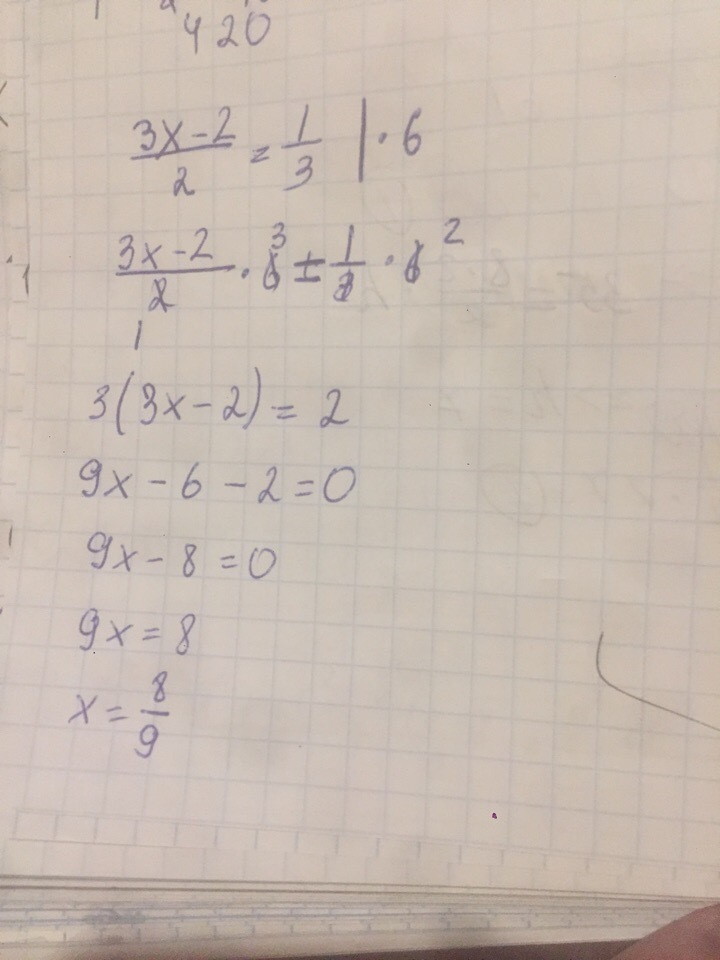 420
3x-2/2 = 1/3 | · 6
3x-2/2 · 6 3 = 1/3 · 6 2
1
3(3x-2) = 2
9x - 6 - 2 = 0
9x - 8 = 0
9x = 8
x = 8/9